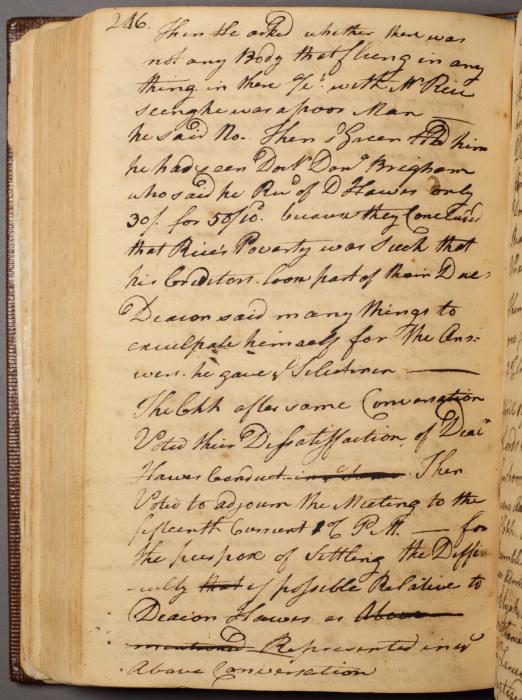 246.
Then He asked whether there was
not any Body that flung in any
thing in there a/c with Mr Rice
seeing he was a poor Man
he said No. Then Green told him
he had seen Doct Don Brigham
who said he Recd of D Hawes only
30/. for 50/10. because they Concluded
that Rice's Poverty was Such that
his Creditors Loose part of their Dues
Deacon said many things to
exculpate himself for The Ans:
wers he gave ye Selectmen
The Chh after some Conversation
Voted their Dissatisfaction of Deacn
Hawes Conduct Then
Voted to adjourn the Meeting to the
fifteenth Current P.M. for
the purpose of Settling the Diffi
culty that if possible Relative to
Deacon Hawes as Above
mentioned Represented in ye
Above Conversation